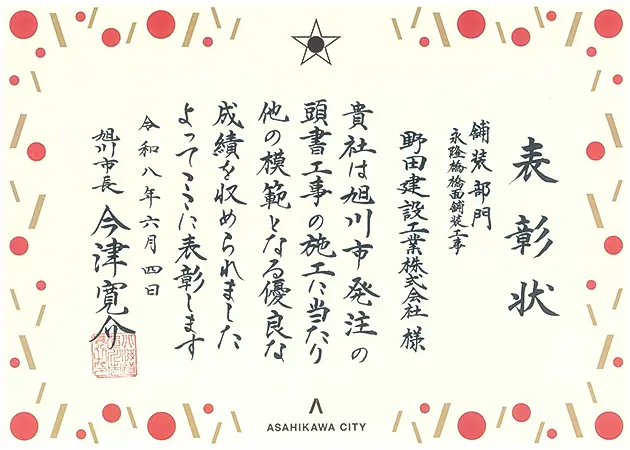 表彰状
舗装部門
永隆橋橋面舗装工事
野田建設工業株式会社 様
貴社は旭川市発注の
頭書工事の施工に当たり
他の模範となる優良な
成績を収められました
よってここに表彰します
令和八年六月四日
旭川市長 今津寛介
ASAHIKAWA CITY